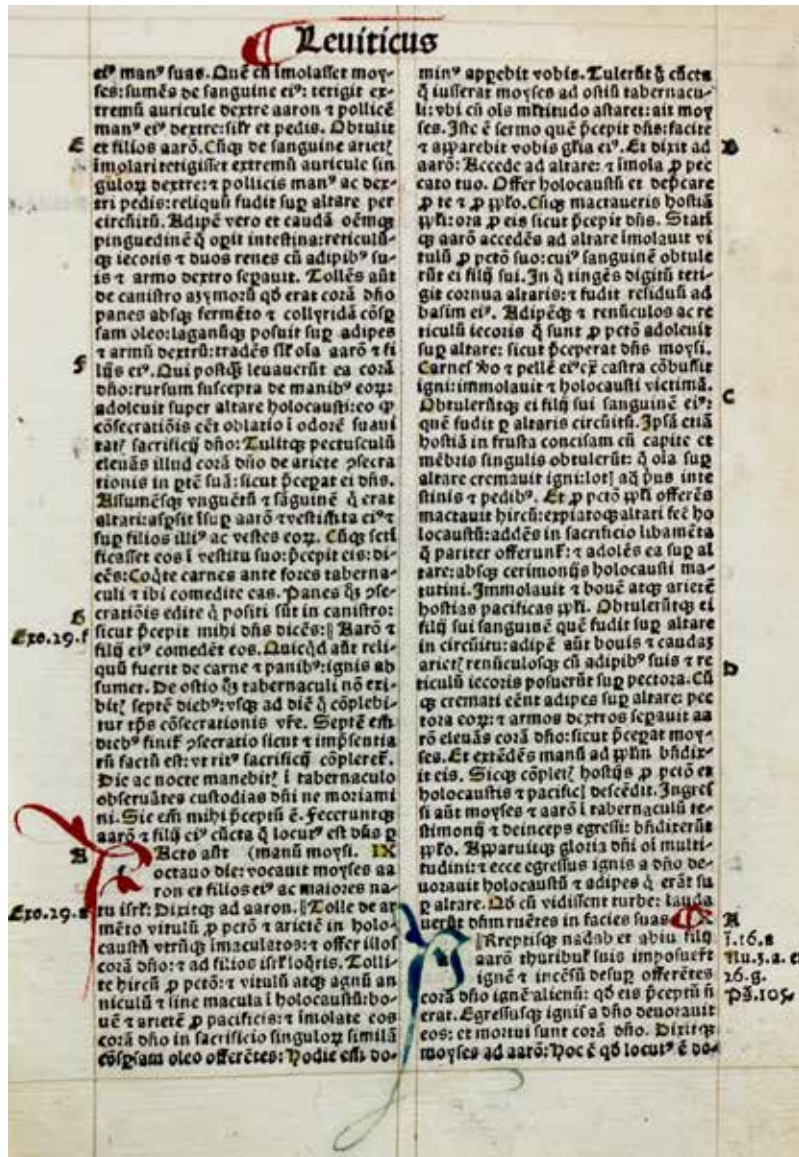 Leuiticus
eiꝰ manꝰ ſuas. Quē cū īmolaſſet moy-
ſes: ſumēs de ſanguine eiꝰ: tetigit ex-
tremū auricule dextre aaron ⁊ pollicē
manꝰ eiꝰ dextre: ſilr et pedis. Obtulit
E
et filios aarō. Cūqꝫ de ſanguine arietꝭ
īmolati tetigiſſet extremū auricule ſin
guloꝝ dextre: ⁊ pollicis manꝰ ac dex-
tri pedis: reliquū fudit ſuꝑ altare per
circūitū. Adipē vero et caudā oēmqꝫ
pinguedinē q̄ oꝑit inteſtina: reticulū-
qꝫ iecoris ⁊ duos renes cū adipibꝰ ſu-
is ⁊ armo dextro ſeꝑauit. Tollēs aūt
de caniſtro azymorū qd̄ erat corā dn̄o
panes abſqꝫ fermēto ⁊ collyridā cōſꝑ
ſam oleo: laganūqꝫ poſuit ſuꝑ adipes
⁊ armū dextrū: tradēs ſil̄ oīa aarō ⁊ fi
F
lijs eiꝰ. Qui poſtqꝫ leuauerūt ea corā
dn̄o: rurſum ſuſcepta de manibꝰ eoꝝ:
adoleuit super altare holocauſti: eo ꝙ
cōſecratiōis eēt oblatio ī odorē ſuaui
tatꝭ ſacrificij dn̄o: Tulitqꝫ pectuſculū
eleuās illud corā dn̄o de ariete ↄſecra
tionis in ꝑtē ſuā: ſicut p̄ceꝑat ei dn̄s.
Aſſumēſqꝫ vnguētū ⁊ ſāguinē q̄ erat
altari: aſꝑſit ſuꝑ aarō ⁊ veſtimēta eiꝰ ⁊
ſuꝑ filios illiꝰ ac veſtes eoꝝ. Cūqꝫ ſcti
ficaſſet eos ī veſtitu ſuo: p̄cepit eis: di-
cēs: Coq̄te carnes ante fores taberna-
culi ⁊ ibi comedite eas. Panes qꝫ ↄſe-
cratiōis edite q̄ poſiti ſūt in caniſtro:
G
Exo.29.f
ſicut p̄cepit mihi dn̄s dicēs: ‖ Aarō ⁊
filij eiꝰ comedēt eos. Quicq̄d aūt reli-
quū fuerit de carne ⁊ panibꝰ: ignis ab
ſumet. De oſtio qꝫ tabernaculi nō exi-
bitꝭ ſeptē diebꝰ: vſqꝫ ad diē q̄ cōplebi-
tur tp̄s cōſecrationis vr̄e. Septē em̄
diebꝰ finit̄ ↄſecratio ſicut ⁊ imp̄ſentia
rū factū eſt: vt ritꝰ ſacrificij cōpleret̄.
Die ac nocte manebitꝭ ī tabernaculo
obſeruātes cuſtodias dn̄i ne moriami
ni. Sic em̄ mihi p̄ceptū ē. Feceruntqꝫ
aarō ⁊ filij eiꝰ cūcta q̄ locutꝰ eſt dn̄s ꝑ
A
Facto aūt (manū moyſi. IX
octauo die: vocauit moyſes aa
ron et filios eiꝰ ac maiores na-
Exo.29.a
tu iſrl̄: Dixitqꝫ ad aaron. ‖ Tolle de ar
mēto vitulū ꝓ pctō ⁊ arietē in holo-
cauſtū vtrūqꝫ īmaculatos: ⁊ offer illos
corā dn̄o: ⁊ ad filios iſrl̄ loq̄ris. Tolli-
te hircū ꝓ pctō: ⁊ vitulū atqꝫ agnū an
niculū ⁊ ſine macula ī holocauſtū: bo-
uē ⁊ arietē ꝓ pacificis: ⁊ īmolate eos
corā dn̄o in ſacrificio ſinguloꝝ ſimilā
cōſꝑſam oleo offerētes: Hodie em̄ do-
minꝰ apꝑebit vobis. Tulerūt g̊ cūcta
q̄ iuſſerat moyſes ad oſtiū tabernacu-
li: vbi cū oīs ml̄titudo aſtaret: ait moy
ſes. Iſte ē ſermo quē p̄cepit dn̄s: facite
⁊ apparebit vobis gl̄ia eiꝰ. Et dixit ad
B
aarō: Accede ad altare: ⁊ īmola ꝓ pec
cato tuo. Offer holocauſtū et dep̄care
ꝓ te ⁊ ꝓ ppl̄o. Cūqꝫ mactaueris hoſtiā
ppl̄i: ora ꝓ eis ſicut p̄cepit dn̄s. Stati
qꝫ aarō accedēs ad altare īmolauit vi
tulū ꝓ pctō ſuo: cuiꝰ ſanguinē obtule
rūt ei filij ſui. In q̄ tingēs digitū teti-
git cornua altaris: ⁊ fudit reſiduū ad
baſim eiꝰ. Adipēqꝫ ⁊ renūculos ac re
ticulū iecoris q̄ ſunt ꝓ pctō adoleuit
ſuꝑ altare: ſicut p̄ceperat dn̄s moyſi.
Carnes v̄o ⁊ pellē eiꝰ ex̄ caſtra cōbuſſit
igni: immolauit ⁊ holocauſti victimā.
C
Obtulerūtqꝫ ei filij ſui ſanguinē eiꝰ:
quē fudit ꝑ altaris circuitū. Ipſā etiā
hoſtiā in fruſta conciſam cū capite et
mēbris ſingulis obtulerūt: q̄ oīa ſuꝑ
altare cremauit igni: lotꝭ aq̄ p̄us inte
ſtinis ⁊ pedibꝰ. Et ꝓ pctō ppl̄i offerēs
mactauit hircū: expiatoqꝫ altari fecit ho
locauſtū: addēs in ſacrificio libamēta
q̄ pariter offerunt̄: ⁊ adolēs ea ſuꝑ al
tare: abſqꝫ cerimonijs holocauſti ma-
tutini. Immolauit ⁊ bouē atqꝫ arietē
hoſtias pacificas ppl̄i. Obtulerūtqꝫ ei
filij ſui ſanguinē quē fudit ſuꝑ altare
in circūitu: adipē aūt bouis ⁊ caudaꝫ
D
arietꝭ renūculoſqꝫ cū adipibꝰ ſuis ⁊ re
ticulū iecoris poſuerūt ſuꝑ pectora. Cū
qꝫ cremati eēnt adipes ſuꝑ altare: pec
tora eoꝝ: ⁊ armos dextros ſeꝑauit aa
rō eleuās corā dn̄o: ſicut p̄ceꝑat moy-
ſes. Et extēdēs manū ad ppl̄m bn̄dix-
it eis. Sicqꝫ cōpletꝭ hoſtijs ꝓ pctō et
holocauſtis ⁊ pacificꝭ deſcēdit. Ingreſ
ſi aūt moyſes ⁊ aarō ī tabernaculū te-
ſtimonij ⁊ deinceps egreſſi: bn̄dixerūt
ppl̄o. Apparuitqꝫ gloria dn̄i oī multi-
tudini: ⁊ ecce egreſſus ignis a dn̄o de-
uorauit holocauſtū ⁊ adipes q̄ erāt ſu
ꝑ altare. Qd̄ cū vidiſſent turbe: lauda
uerūt dn̄m ruētes in facies ſuas. X
A
i.16.a
Nu.3.a. et
26.g.
Ps.105.
‖ Arreptiſqꝫ nadab et abiu filij
aarō thuribulꝭ ſuis impoſuerūt
ignē ⁊ incēſū deſuꝑ offerētes
corā dn̄o ignē alienū: qd̄ eis p̄ceptū nō
erat. Egreſſuſqꝫ ignis a dn̄o deuorauit
eos: et mortui ſunt corā dn̄o. Dixitqꝫ
moyſes ad aarō: Hoc ē qd̄ locutꝰ ē do-